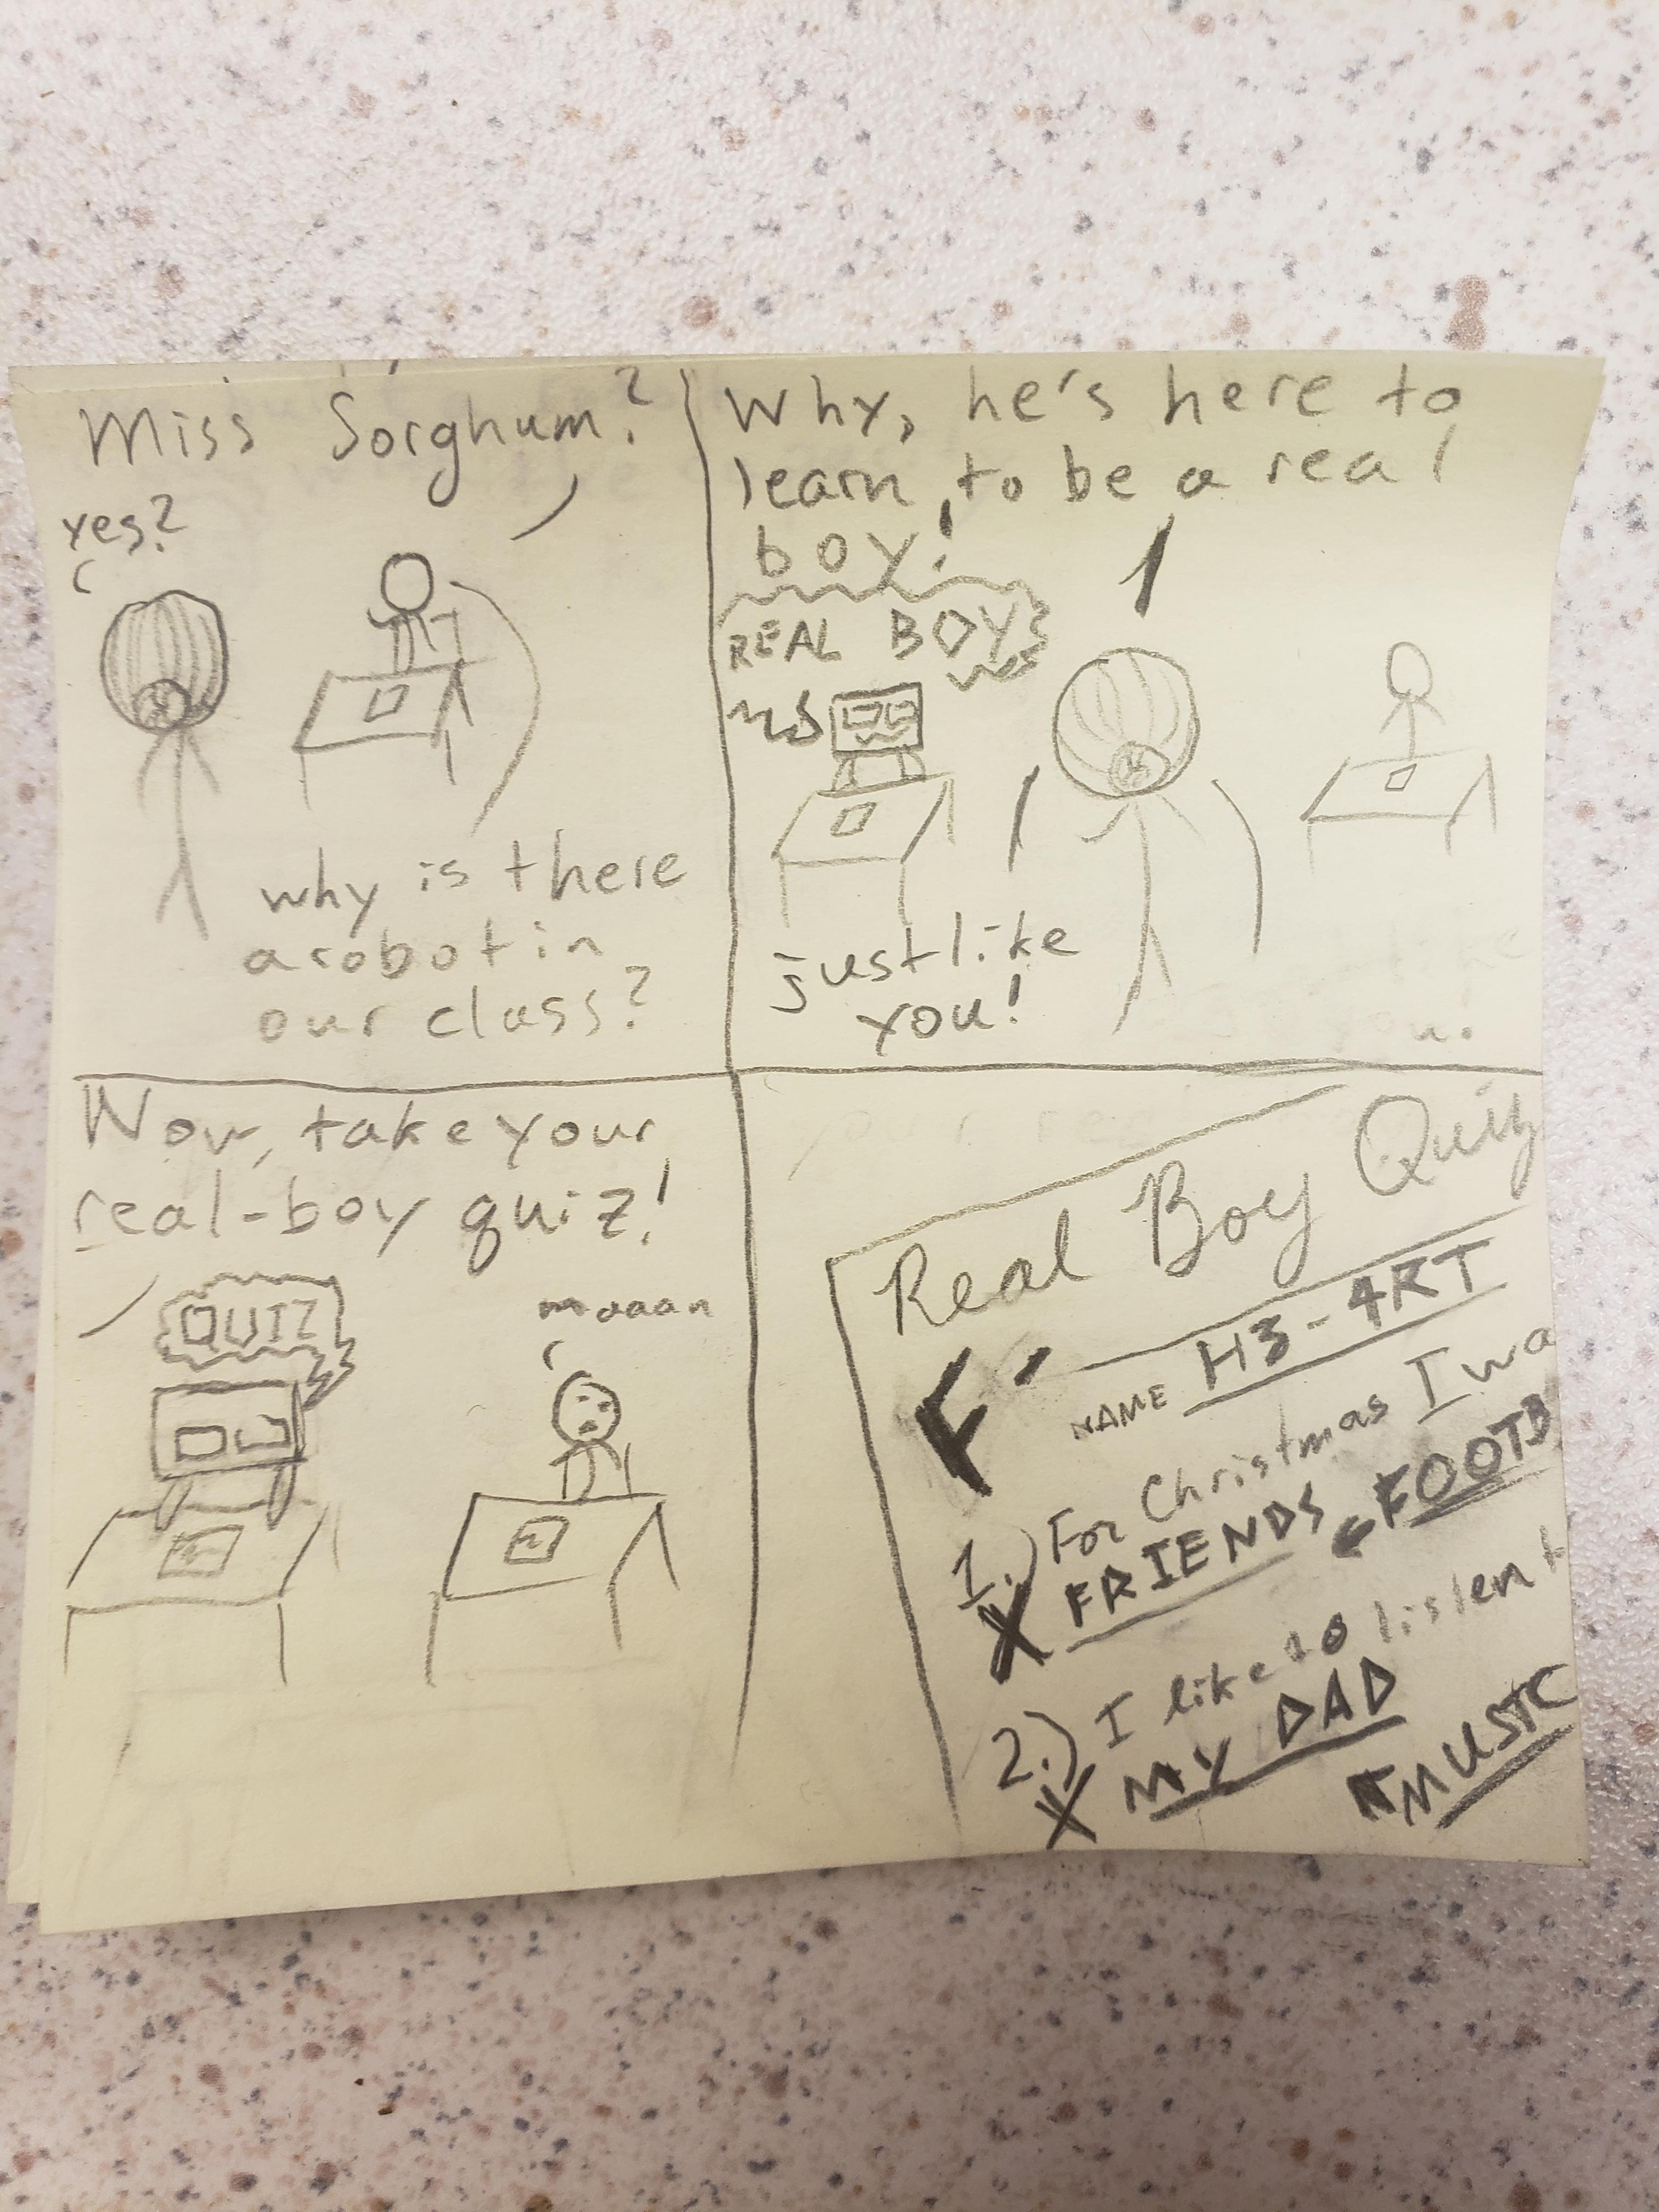 Miss Sorghum?
yes?
why is there
a robot in
our class?
Why, he's here to
learn to be a real
boy!
REAL BOY
just like
you!
Now, take your
real-boy quiz!
QUIZ
maaan
Real Boy Quiz
F-
NAME H3-4RT
1.) For Christmas I wa
X FRIENDS FOOTB
2.) I like to listen t
X MY DAD
MUSIC